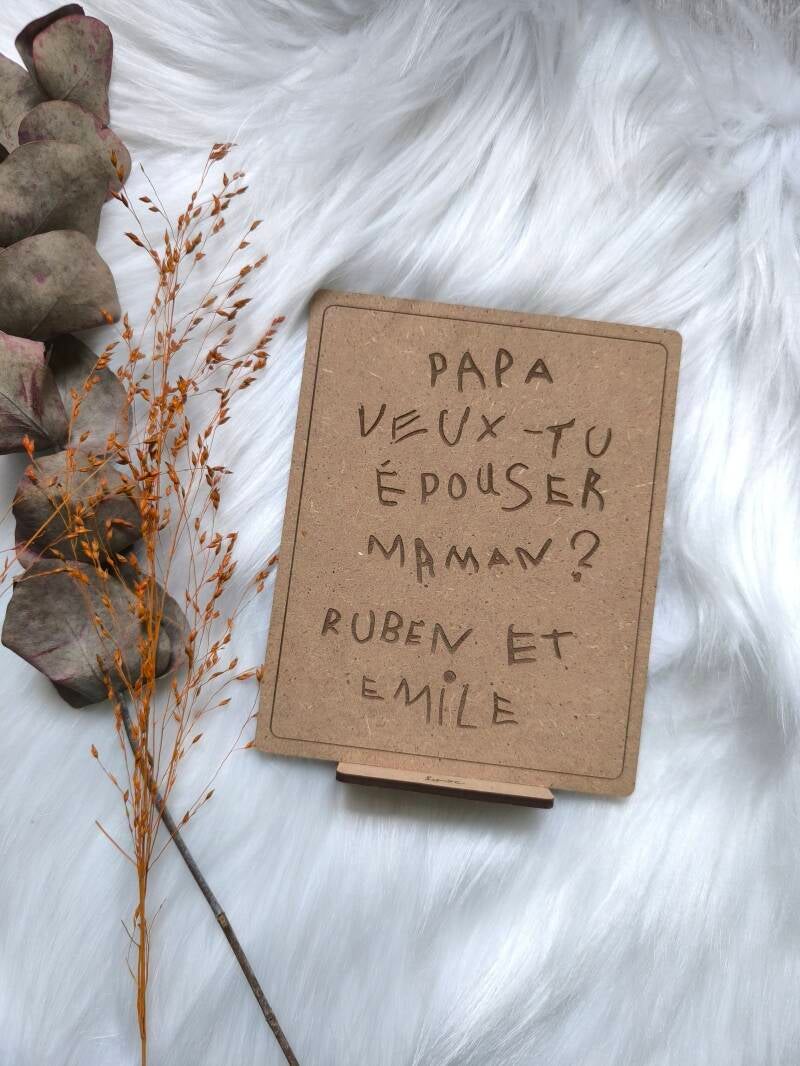 PAPA
VEUX-TU
ÉPOUSER
MAMAN?
RUBEN ET
EMILE